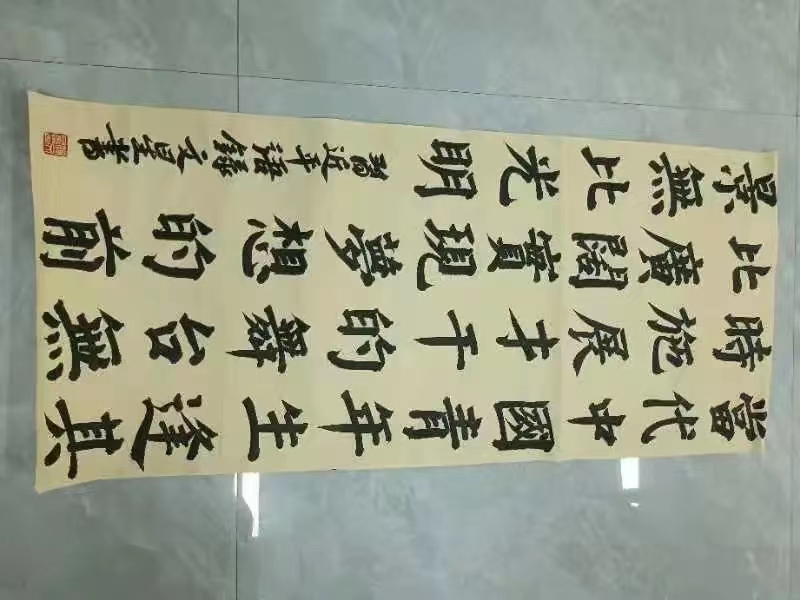 當代中國青年生逢其
時施展才干的舞台無
比廣闊實現夢想的前
景無比光明
習近平語錄 文星書